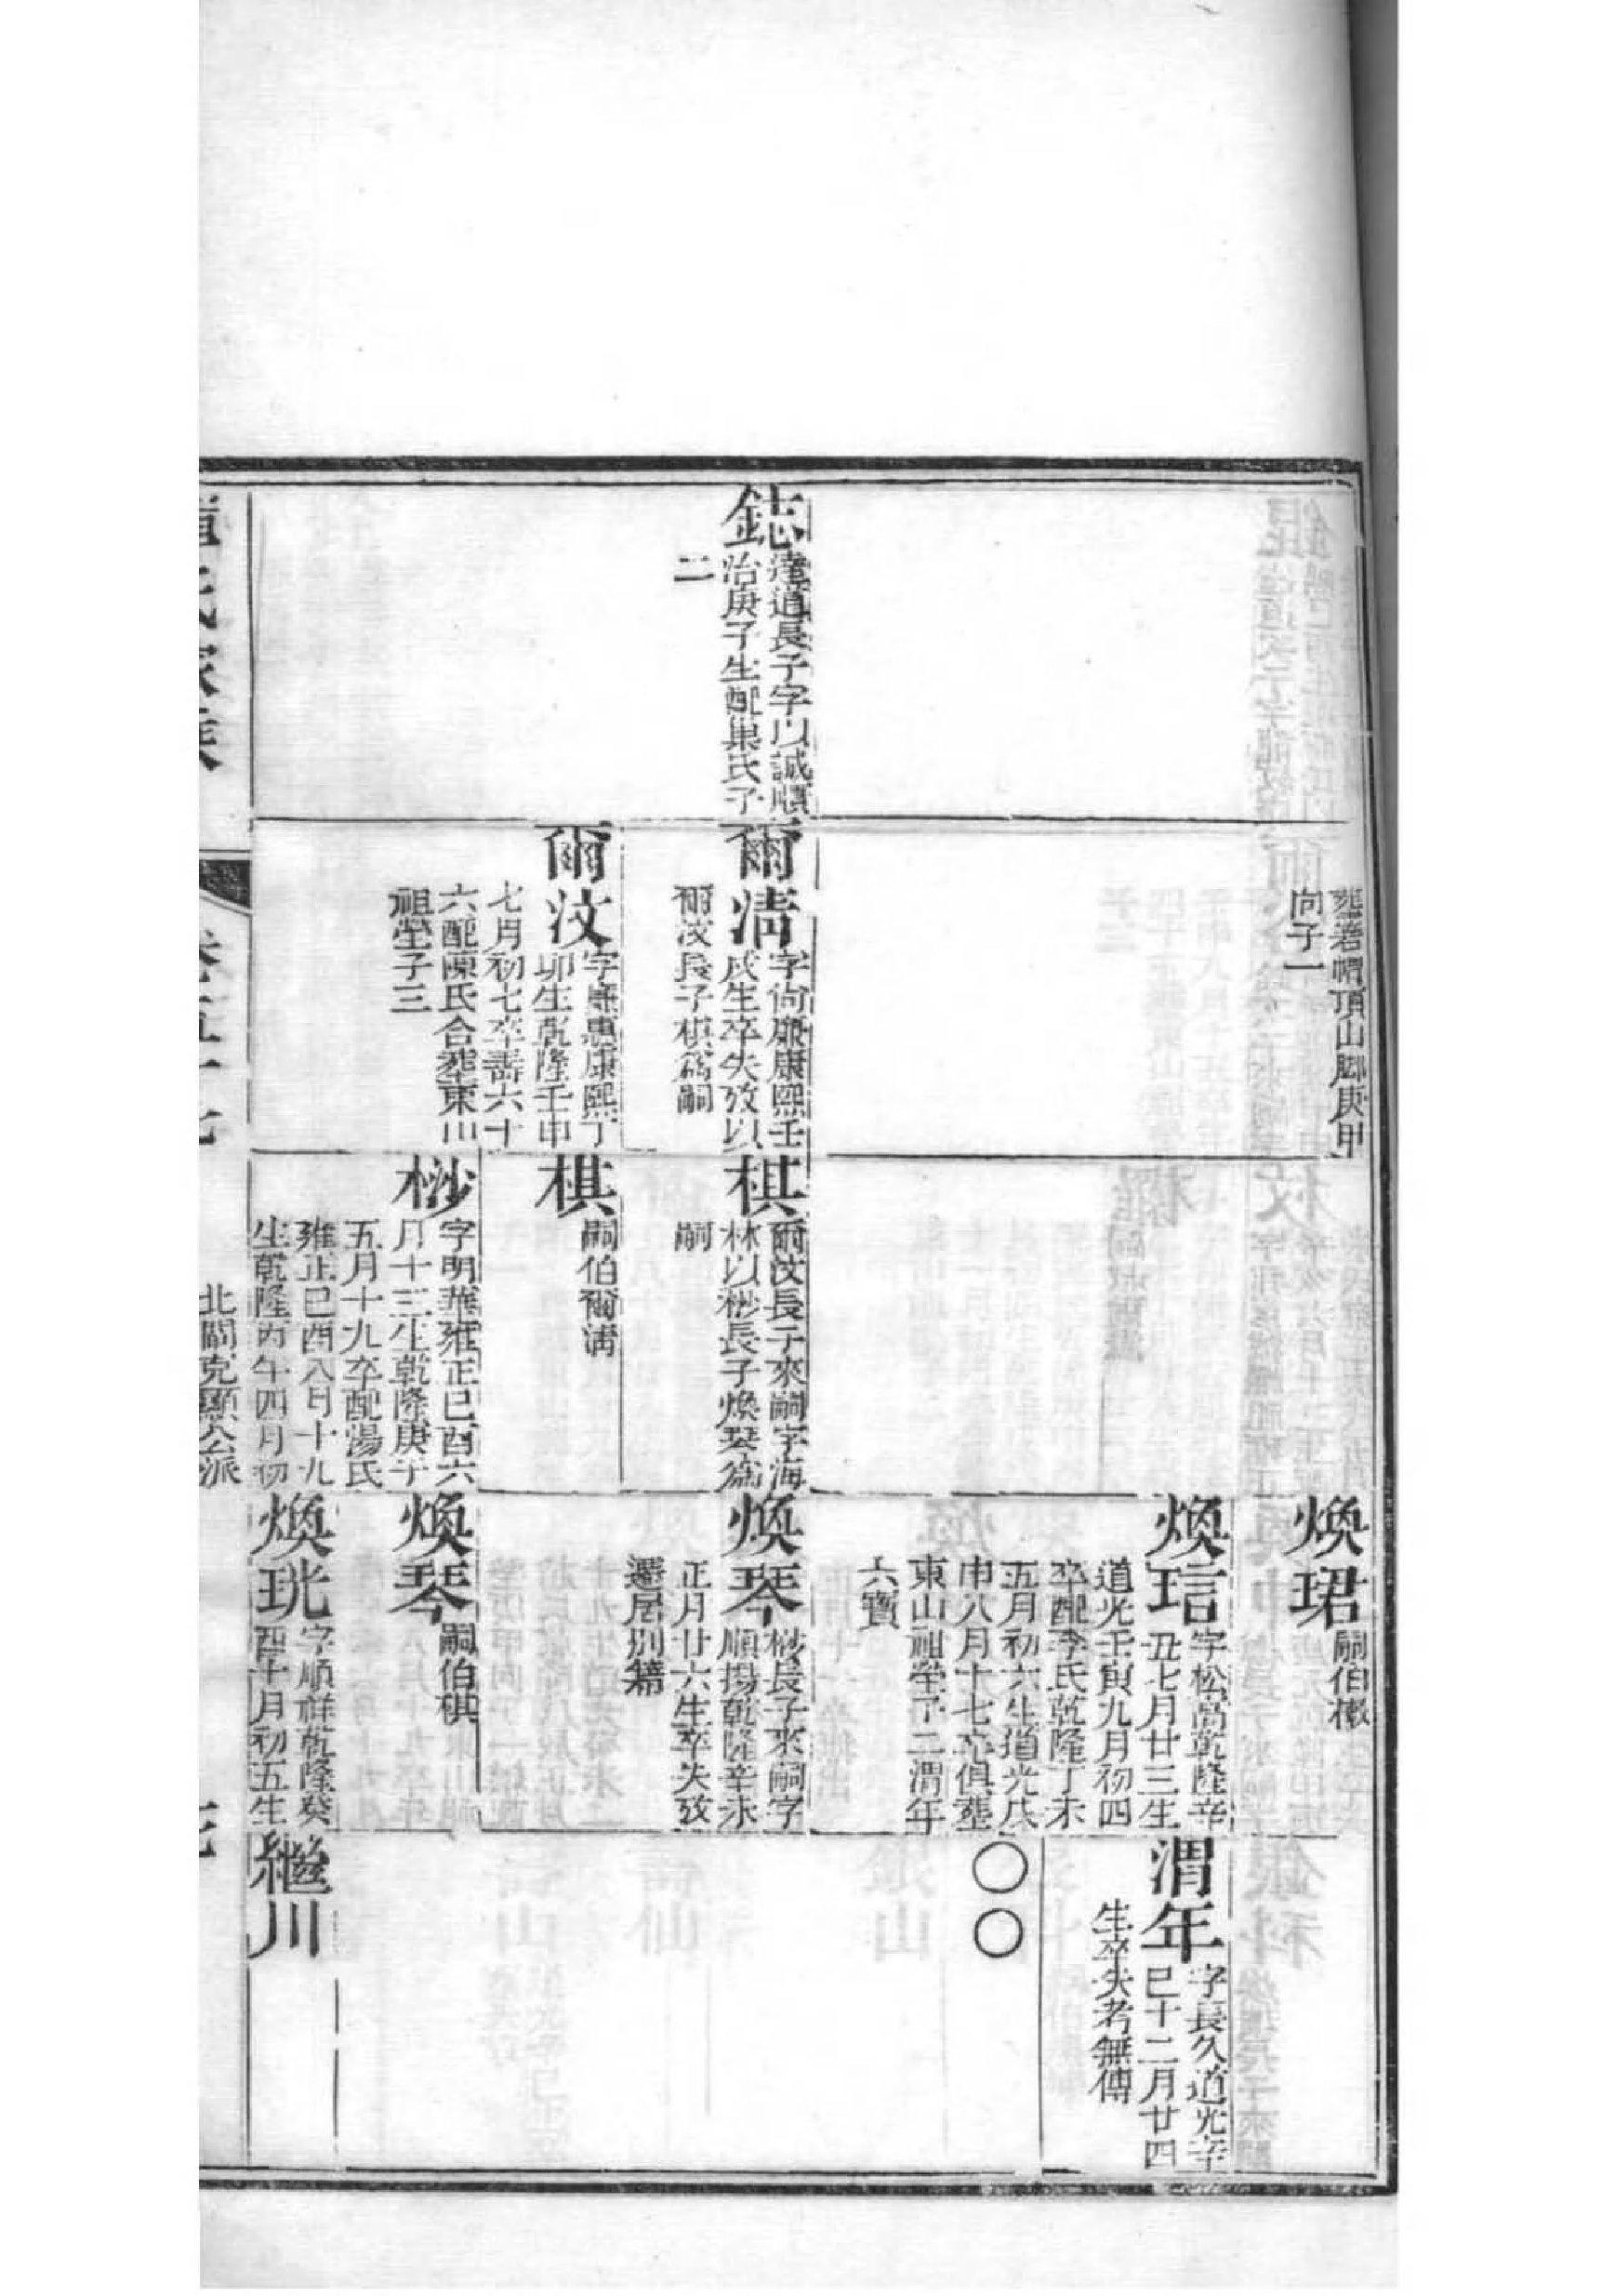 鋕
達道長子字以誠順
治庚子生配巢氏子
二
雍君帽頂山腳庚甲
向子一
爾淸
字尙廉康熙壬
戌生卒失攷以
爾汶長子棋爲嗣
爾汶
字廉惠康熙丁
卯生乾隆壬申
七月初七卒壽六十
六配陳氏合葬東山
祖塋子三
棋
爾汶長子來嗣字海
林以桫長子煥琴爲
嗣
棋
嗣伯爾淸
桫
字明華雍正己酉六
月十三生乾隆庚子
五月十九卒配湯氏
雍正己酉八月十九
生乾隆丙午四月初
煥珺
嗣伯檄
煥琂
字松高乾隆辛
丑七月廿三生
道光壬寅九月初四
卒配李氏乾隆丁未
五月初六生道光戊
申八月十七卒俱葬
東山祖塋子二渭年
六寶
煥琴
桫長子來嗣字
順揚乾隆辛未
正月廿六生卒失攷
遷居別籍
煥琴
嗣伯棋
煥珖
字順祥乾隆癸
酉十月初五生
渭年
字長久道光辛
巳十二月廿四
生卒失考無傳
〇〇
繼川
氏家乘
卷五十七
北關克顯公派
七